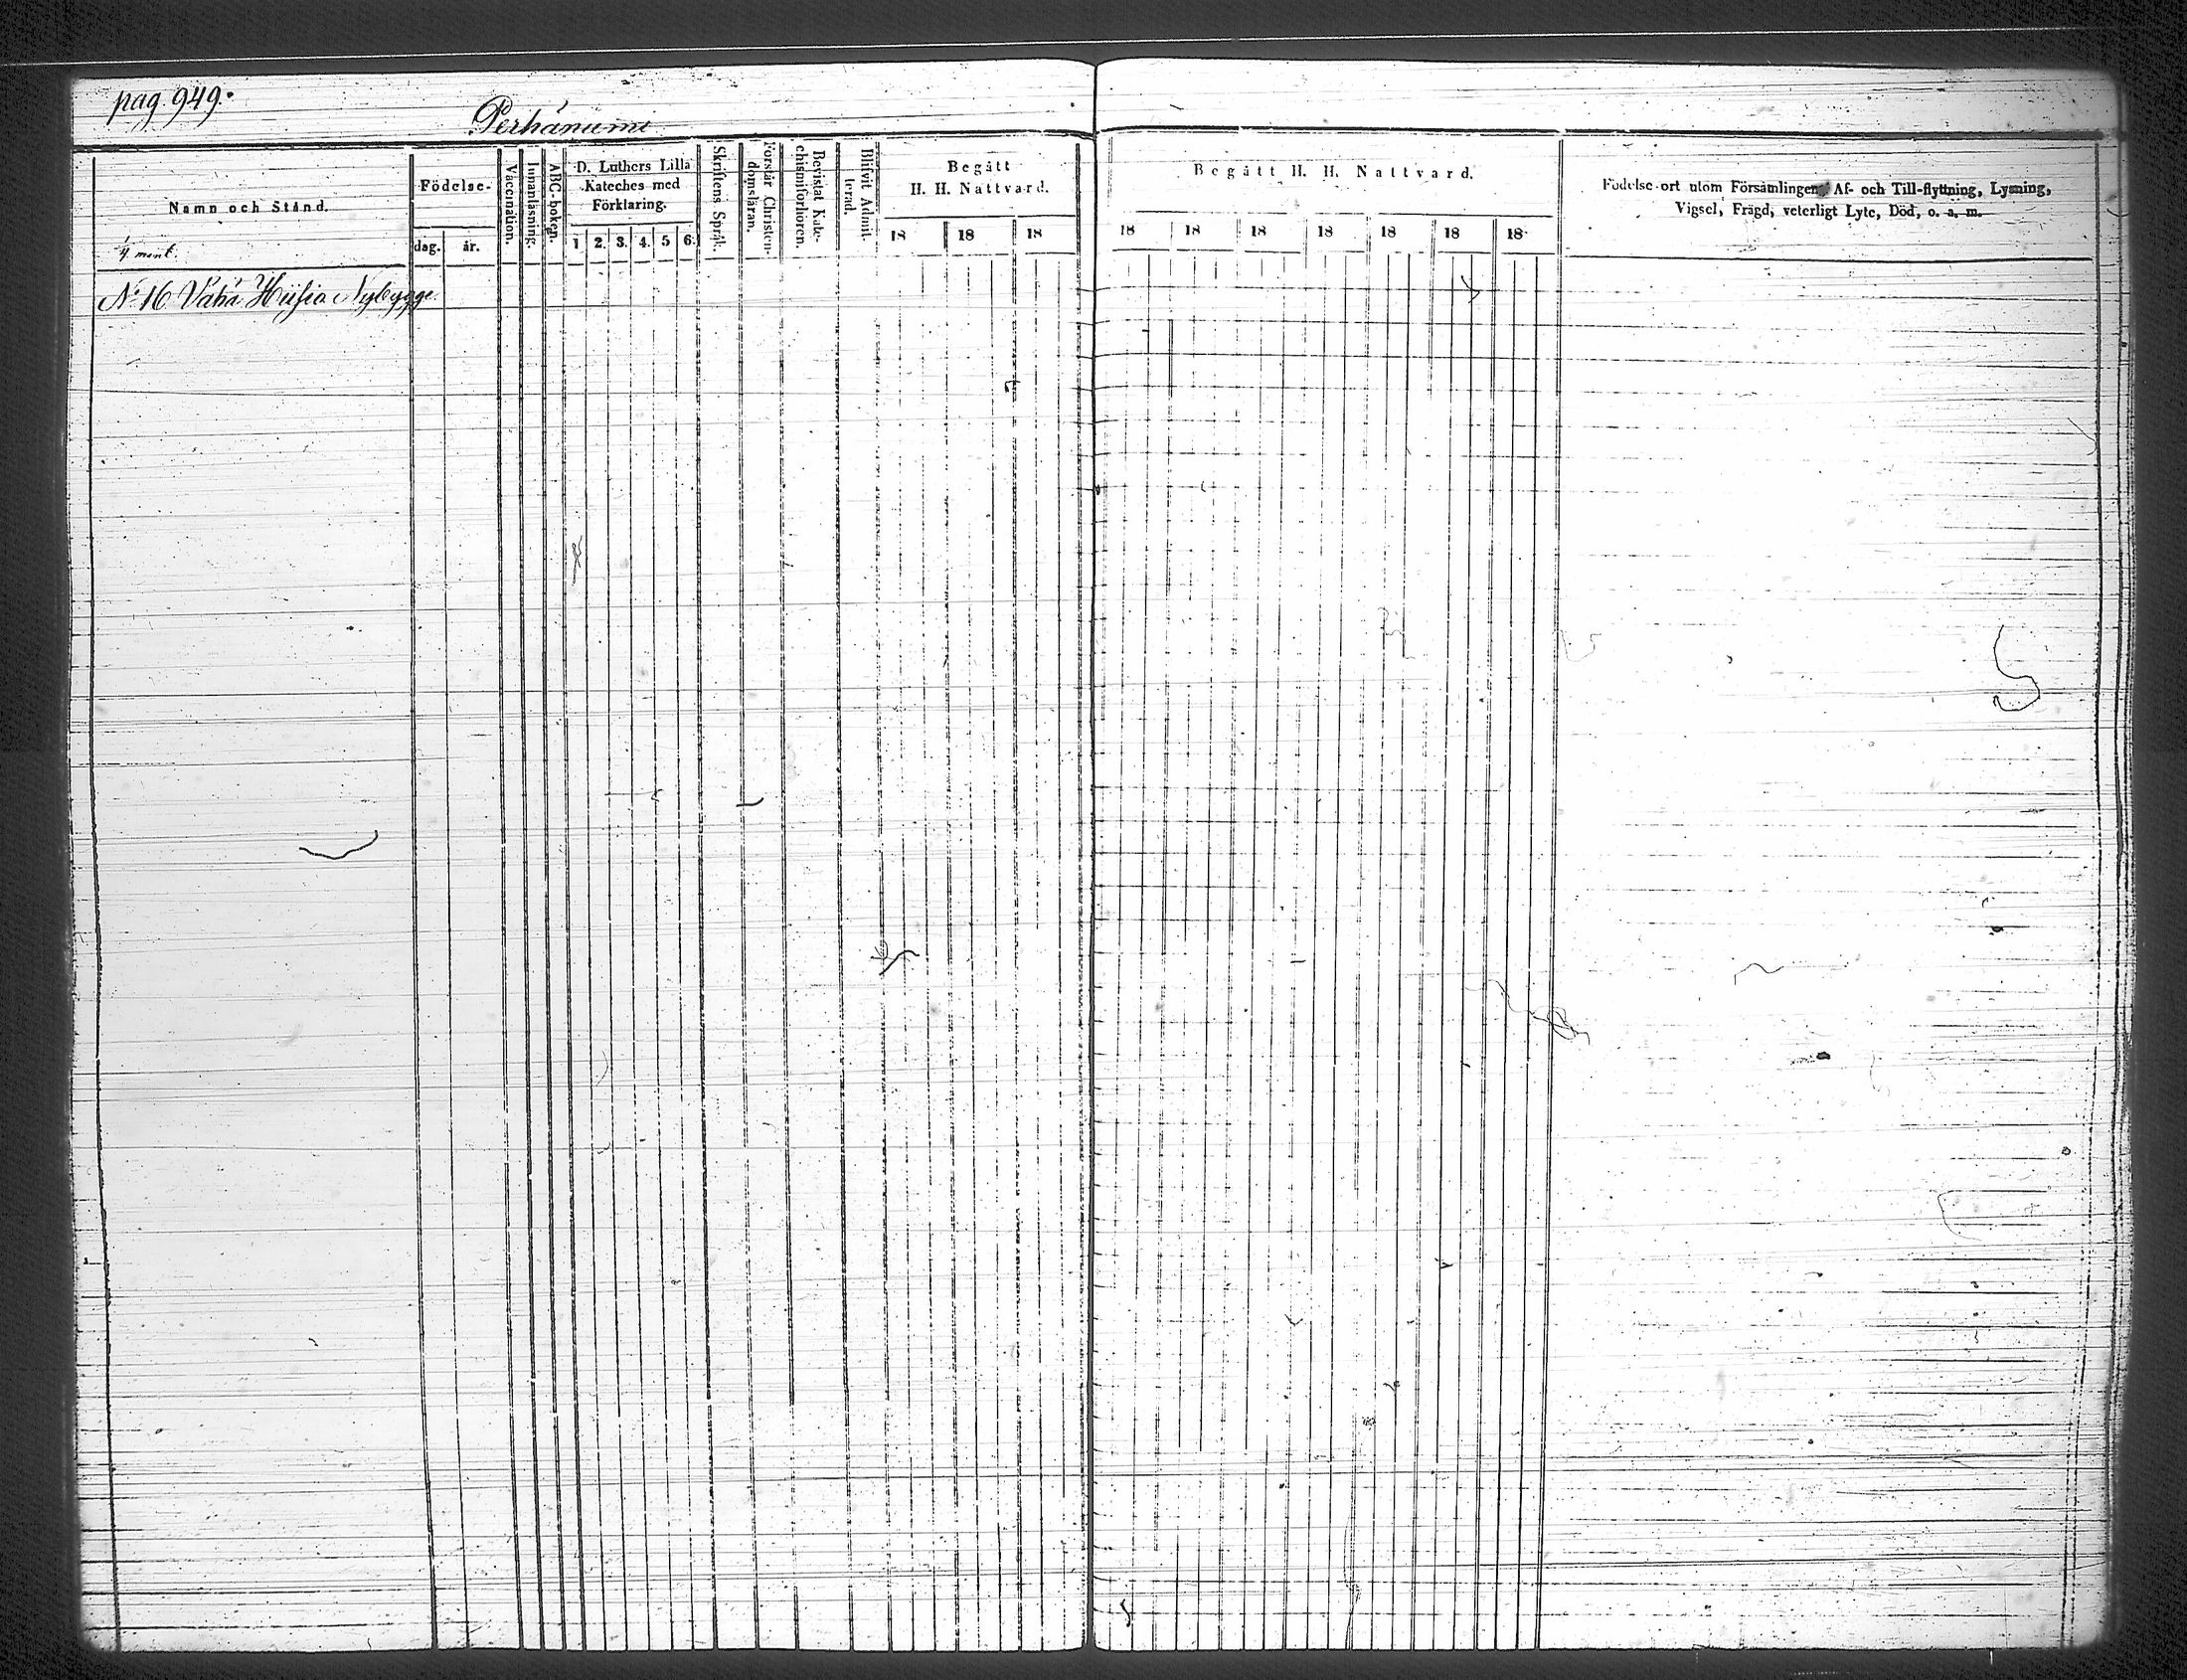 pag. 949.
Perhäniemi
Namn och Stånd.
¼ mant.
Födelse-
dag. år.
Vaccination.
Innanläsning.
ABC-boken.
D. Luthers Lilla
Kateches med
Förklaring.
1 2. 3. 4. 5 6
Skriftens Språk.
Förstår Christen-
domsläran.
Bevistat Kate-
chismiförhören.
Blifvit Admit-
terad.
Begått
H. H. Nattvard.
18 18 18
Begått H. H. Nattvard.
18 18 18 18 18 18 18
Födelse-ort utom Församlingen, Af- och Till-flyttning, Lysning,
Vigsel, Frägd, veterligt Lyte, Död, o. s. m.
No 16 Vähä Hiisia Nybygge.